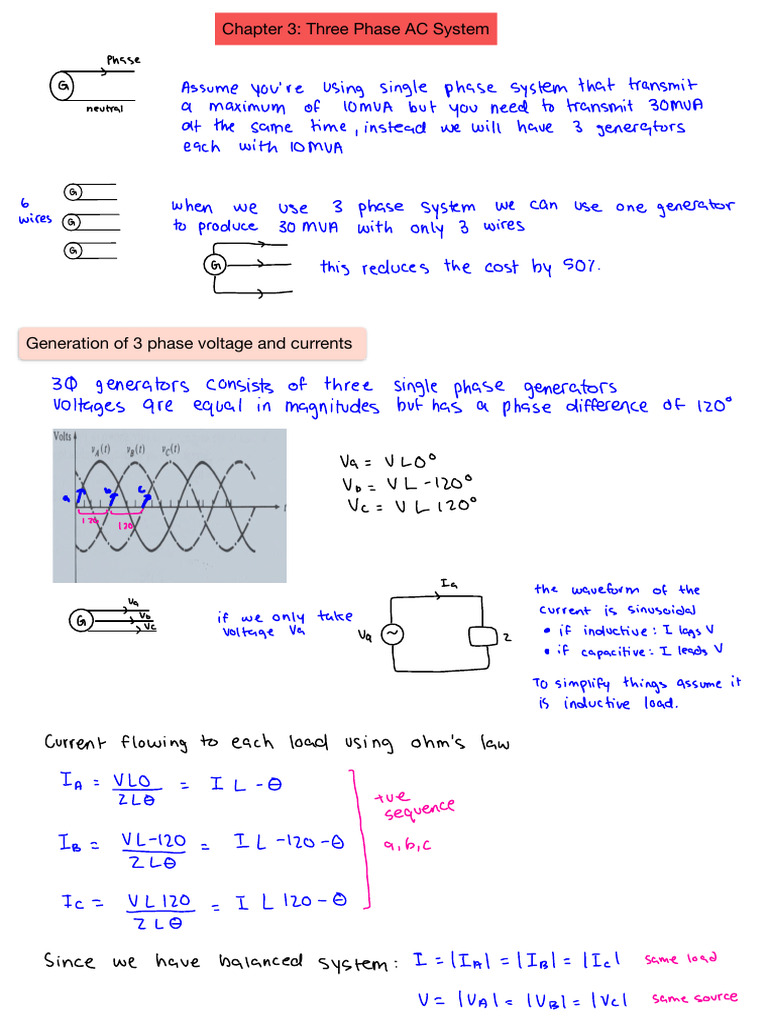 Chapter 3: Three Phase AC System
Phase
G
neutral
Assume you're using single phase system that transmit
a maximum of 10MVA but you need to transmit 30MVA
at the same time, instead we will have 3 generators
each with 10MVA
6
wires
G
G
G
when we use 3 phase system we can use one generator
to produce 30 MVA with only 3 wires
G
this reduces the cost by 50%.
Generation of 3 phase voltage and currents
3Φ generators consists of three single phase generators
voltages are equal in magnitudes but has a phase difference of 120°
Volts
vA(t) vB(t) vC(t)
a b c
120 120
t
Va = V∠0°
Vb = V∠-120°
Vc = V∠120°
G
Va
Vb
Vc
if we only take
voltage Va
Ia
Va
Z
the waveform of the
current is sinusoidal
• if inductive: I lags V
• if capacitive: I leads V
To simplify things assume it
is inductive load.
Current flowing to each load using ohm's law
IA = V∠0 / Z∠θ = I∠-θ
IB = V∠-120 / Z∠θ = I∠-120-θ
IC = V∠120 / Z∠θ = I∠120-θ
+ve
sequence
a,b,c
Since we have balanced system: I = |IA| = |IB| = |IC| same load
V = |VA| = |VB| = |VC| same source